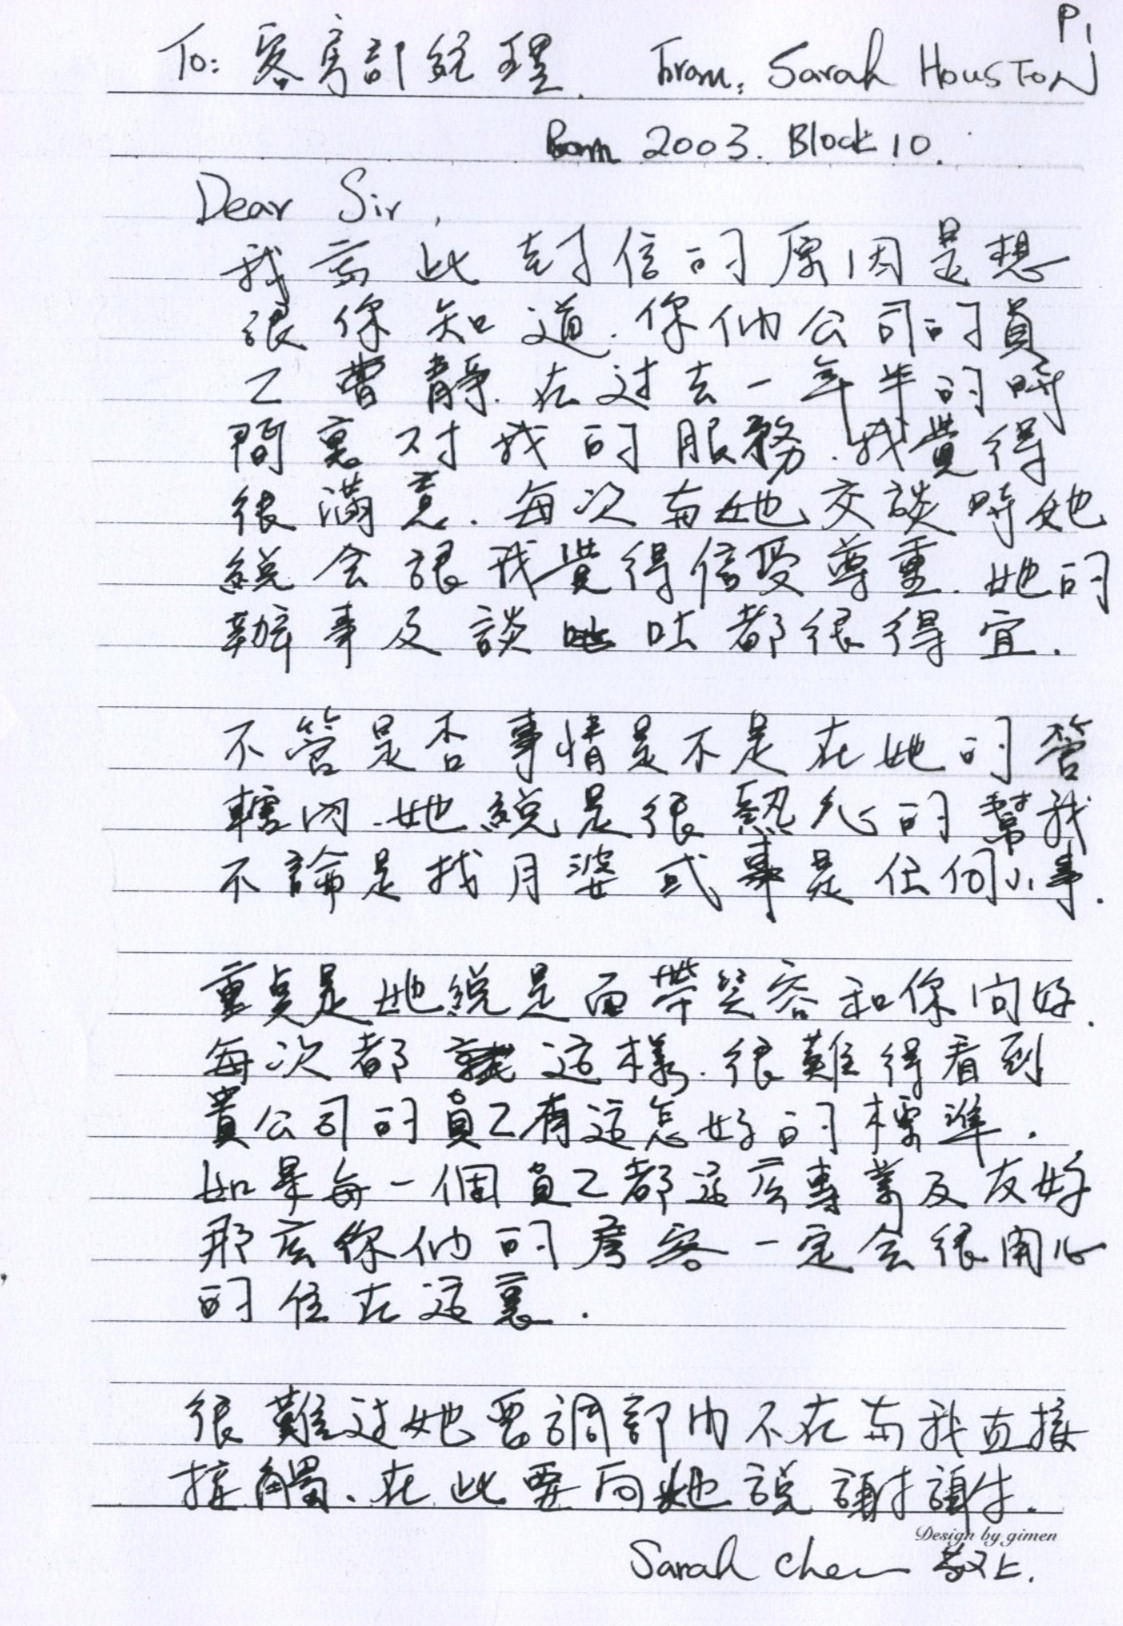 P1
To: 客房部經理. From: Sarah HOUSTON
Room 2003. Block 10.
Dear Sir,
我寫此封信的原因是想
讓你知道.你們公司的員
工曹靜.在过去一年半的時
間裏对我的服務.我覺得
很滿意.每次与她交談時她
總会讓我覺得倍受尊重.她的
辦事及談吐都很得宜.
不管是否事情是不是在她的管
轄內.她總是很熱心的幫我
不論是找月婆或事是任何小事.
重点是她總是面帶笑容和你问好.
每次都就这樣.很難得看到
貴公司的員工有这怎好的標準.
如果每一個員工都这庅專業及友好
那庅你们的房客一定会很開心
的住在这裏.
很難过她要調部门不在与我直接
接觸.在此要向她說謝謝.
Design by gimen
Sarah Chen 敬上.